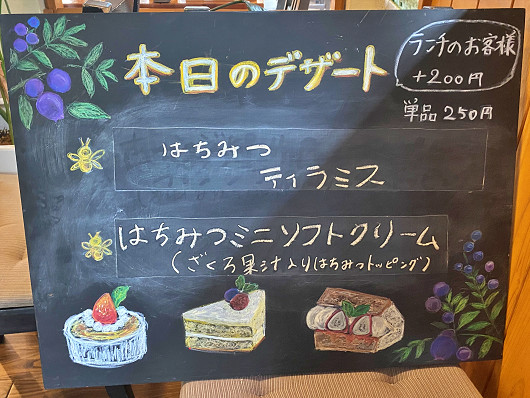 本日のデザート
ランチのお客様
+200円
単品 250円
はちみつ
ティラミス
はちみつミニソフトクリーム
(ざくろ果汁入りはちみつトッピング)